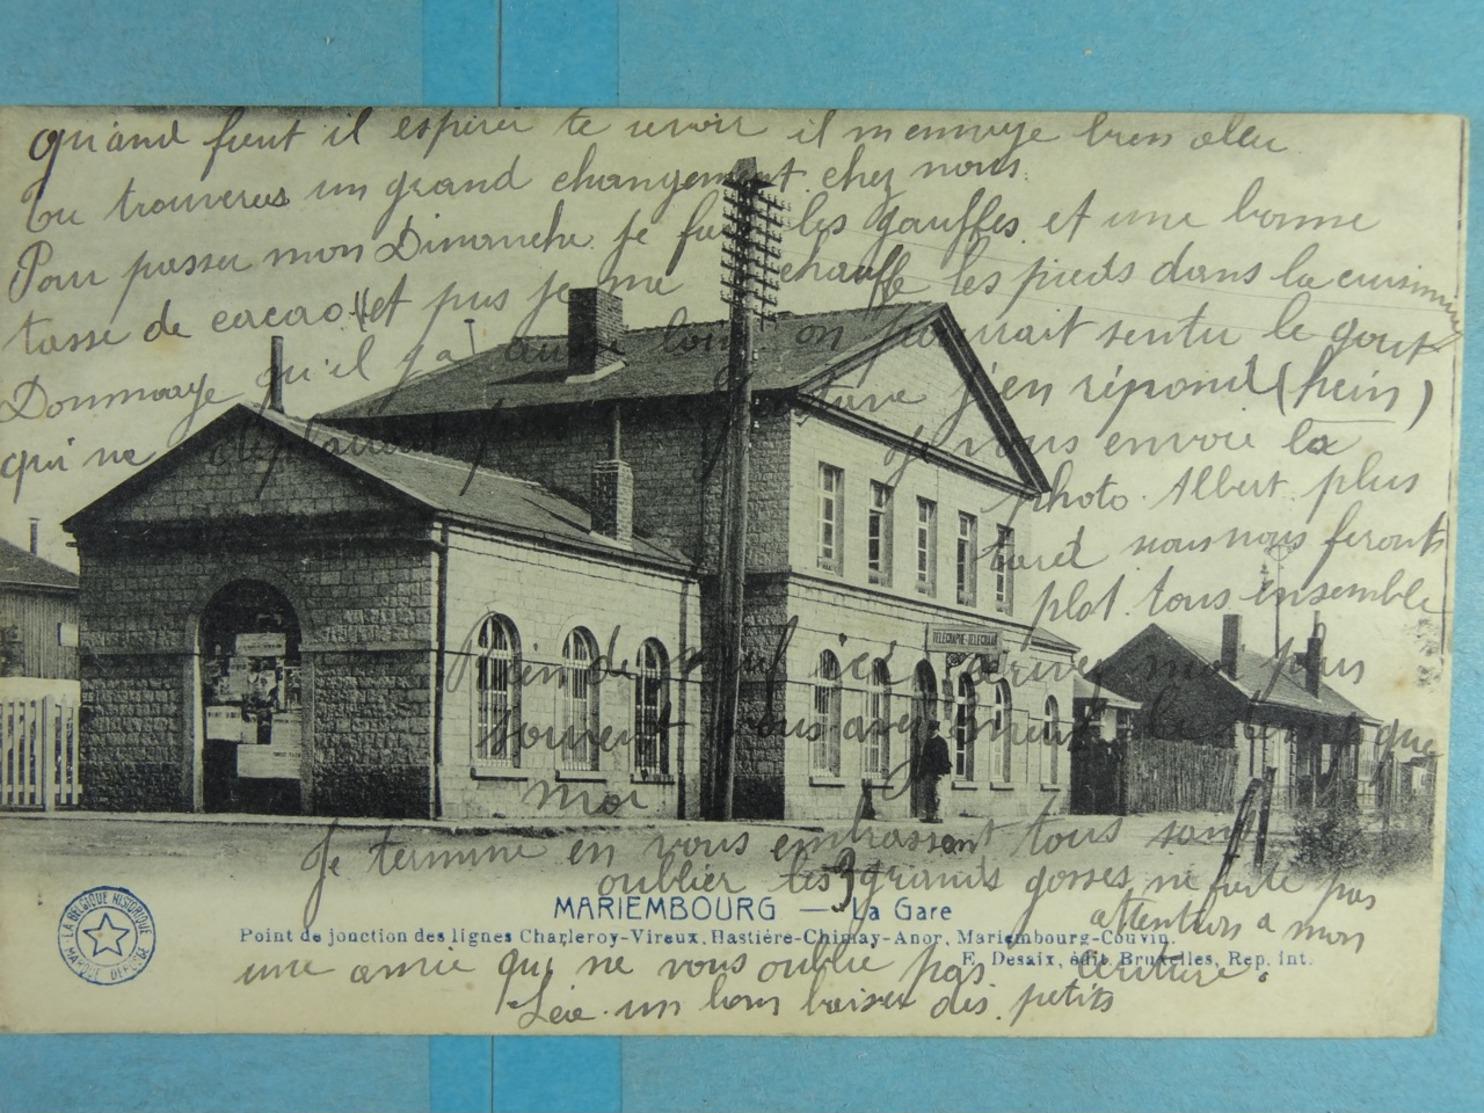 quand
il espérer te revoir il m ennuye bien
tu trouveras un grand changement chez nous.
Pour passer mon Dimanche. je les gauffes et une bonne
tasse de cacao et puis je me chauffe les pieds dans la cuisine
Dommage qu'il y a aussi loin on pourrait sentir le gout
qui ne j'en répond (hein)
je vous envoie la
photo. Albert. plus
tard nous nous feront
plot. tous ensemble
Rien de neuf ici écrivez moi plus
souvent vous avez mieux le temps que
moi
Je termine en vous embrassant tous sans
oublier les 3 grands gosses ne faite pas
attention a mon
écriture.
une amie qui ne vous oublie pas
Léa. un bons baiser des petits
MARIEMBOURG — La Gare
Point de jonction des lignes Charleroy-Vireux, Hastière-Chimay-Anor, Mariembourg-Couvin.
E. Desaix, édit. Bruxelles, Rep. int.
LA BELGIQUE HISTORIQUE
MARQUE DÉPOSÉE
TÉLÉGRAPHE-TELEGRAAF